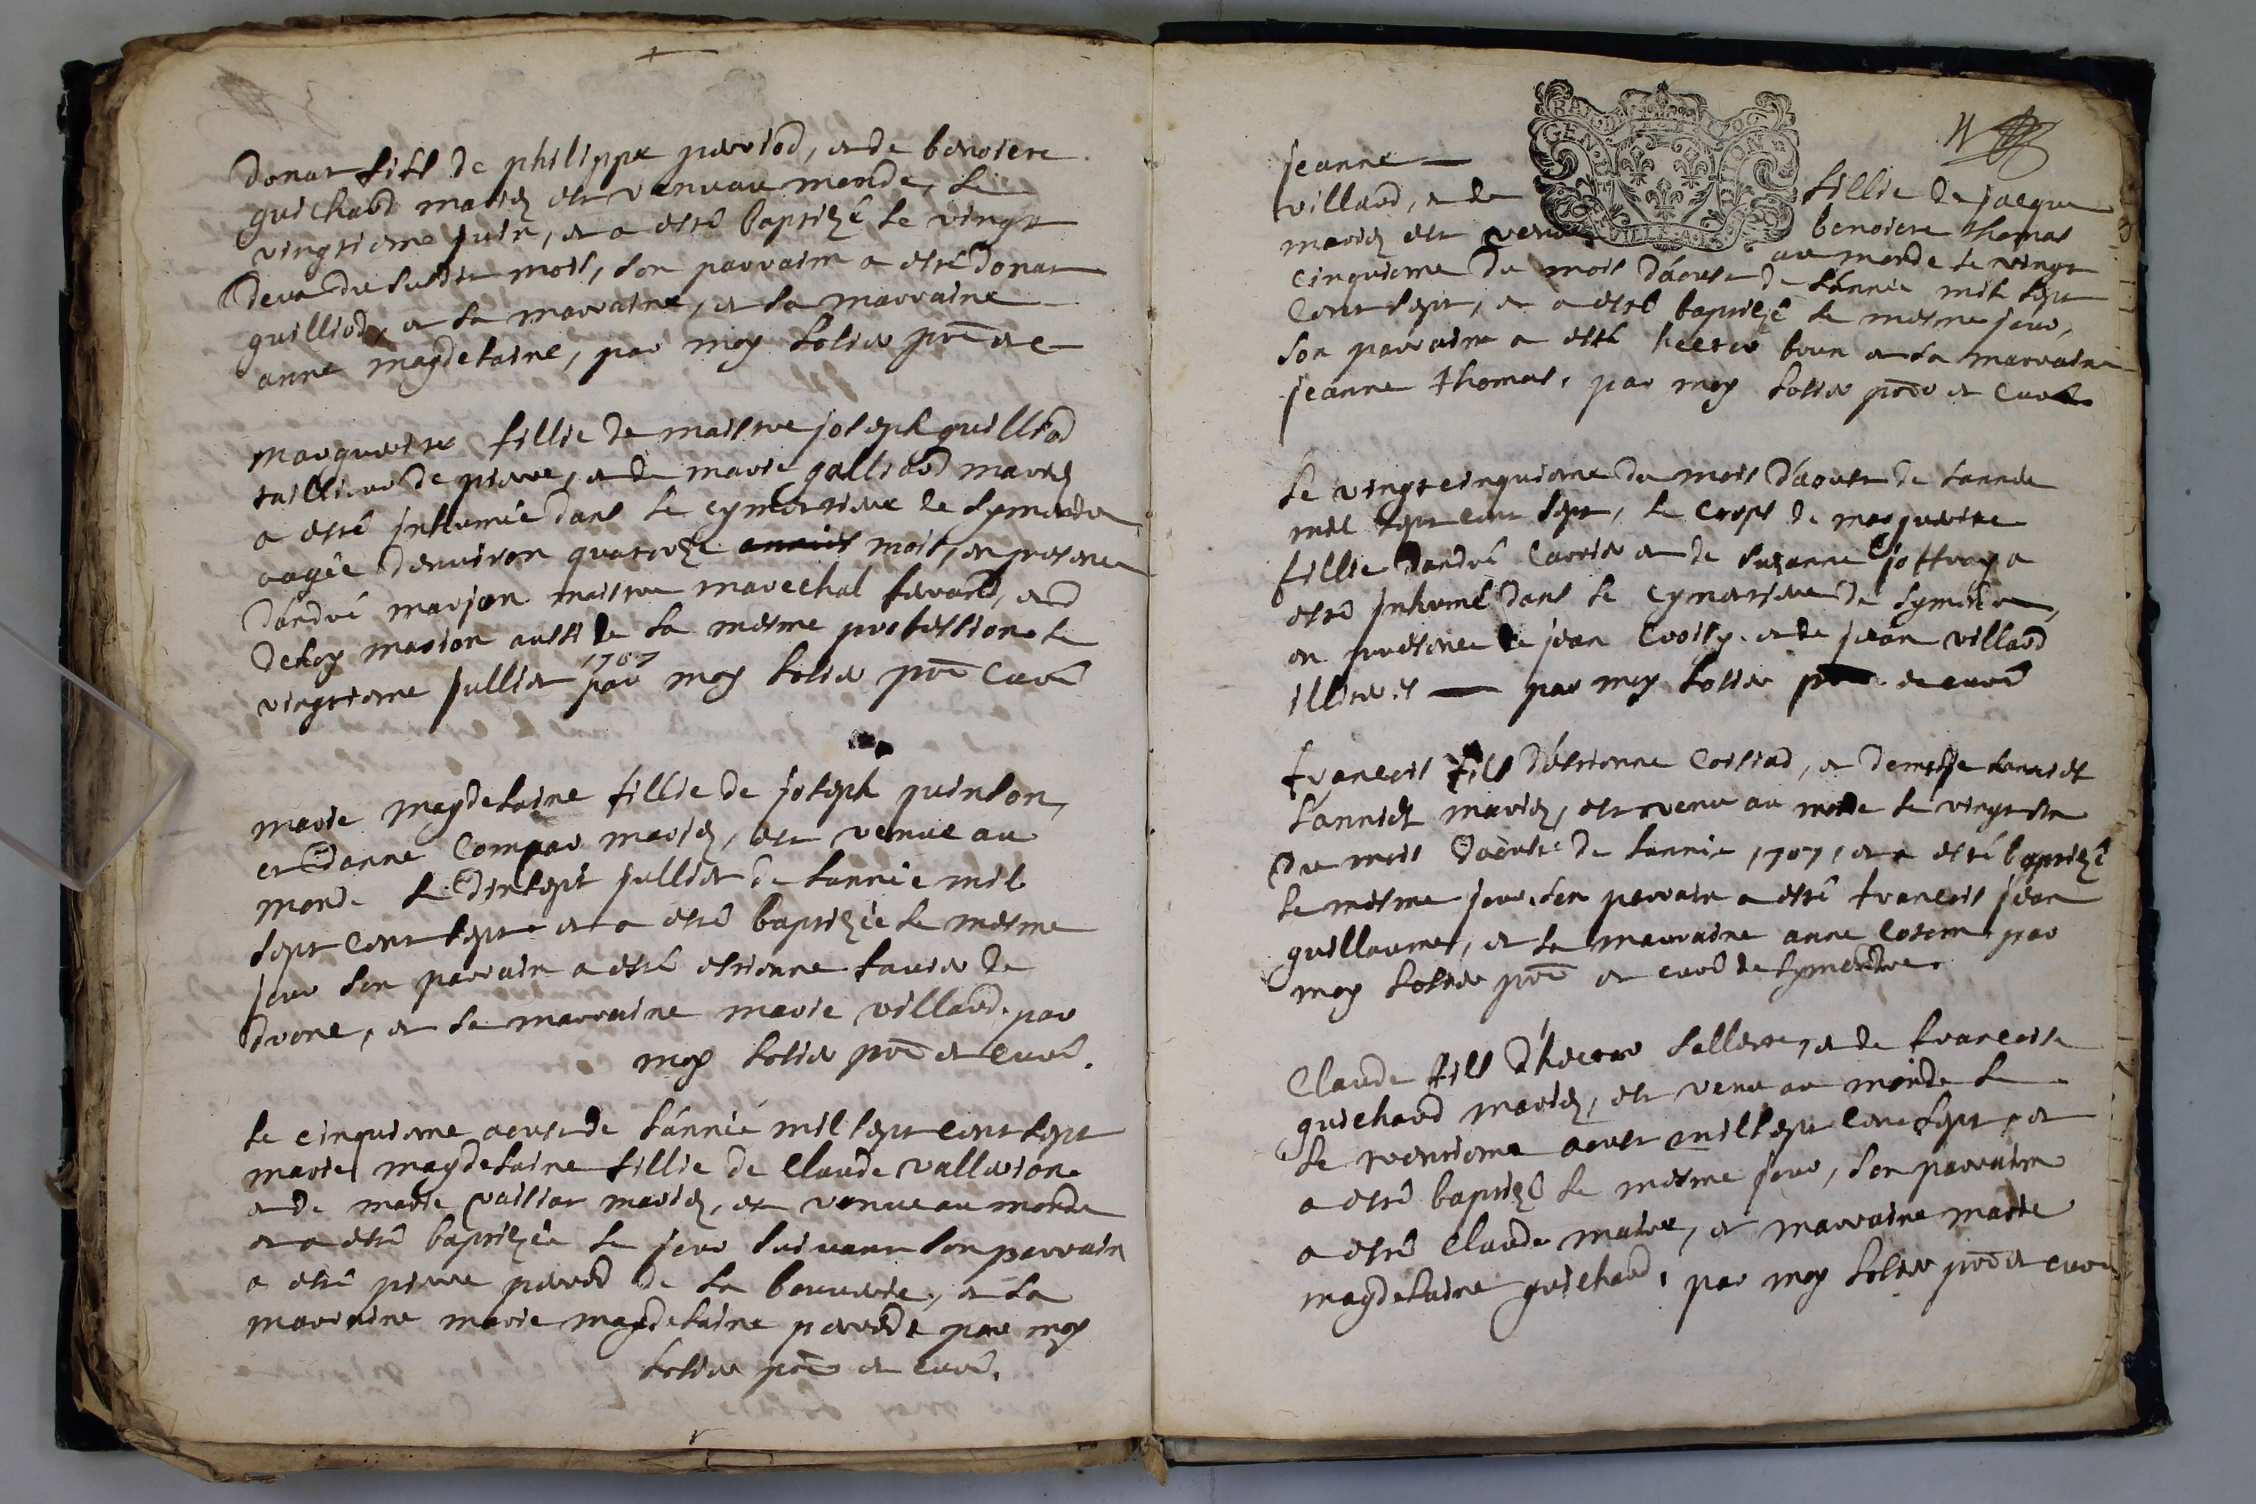 donat fils de philippe perriod, et de benoiste
guichard mariez est venu au monde, le
vingtieme juin, et a esté baptizé le vingt
deux du susdit mois, son parrain a esté donat
guilliod, et sa marraine, et sa marraine
anne magdelaine, par moy solier pre et c
marguerite fillie de maistre joseph guilliod
tailleur de pierre, et de marie galliard mariez
a esté inhumée dans le cymetiere de symandre
aagée d'environ quatorze mois, en presence
d'andré marjon maistre marechal ferrand, et
marion aussi de la mesme profession le
vingtieme jullier 1707 par moy solier pre curé
marie magdelaine fillie de joseph quinson,
et d'anne compar mariez, est venue au
monde le dixsept jullier de l'année mil
sept cent sept et a esté baptizée le mesme
jour son parrain a esté etienne favier de
drone, et sa marraine marie villard. par
moy solier pre et curé.
le cinquieme aoust de l'année mil sept cent sept
marie magdelaine fillie de claude vallurion
et de marie mariez, est venue au monde
et a esté baptizée le jour suivant son parrain
a esté pierre perrod de la bouverie, et sa
marraine marie magdelaine perrod par moy
solier pre et curé.
GEN DE
jeanne fillie de jacque
villard, et de benoiste thomas
mariez est venue au monde le vingt
cinquieme du mois d'aoust de l'année mil sept
cent sept, et a esté baptizé le mesme jour,
son parrain a esté brun et sa marraine
jeanne thomas, par moy solier pre et curé
le vingt cinquieme du mois d'aoust de l'année
mil sept cent sept, le corps de marguerite
fillie d'andré carrier et de suzanne joffray a
esté inhumé dans le cymetiere de symandre,
en presence de jean croisy et de jean villard
illiteres par moy solier pre et curé
françois fils d'etienne et de
mariez, est venu au monde le vingt six
du mois d'aoust de l'année 1707, et a esté baptizé
le mesme jour, son parrain a esté françois jean
guillaume, et sa marraine anne par
moy solier pre et curé de symandre.
Claude fils d'hector et de françoise
guichard mariez, est venu au monde le
le trentieme aoust mil sept cent sept, et
a esté baptizé le mesme jour, son parrain
a esté claude maire, et marraine marie
magdelaine guichard, par moy solier pre et curé